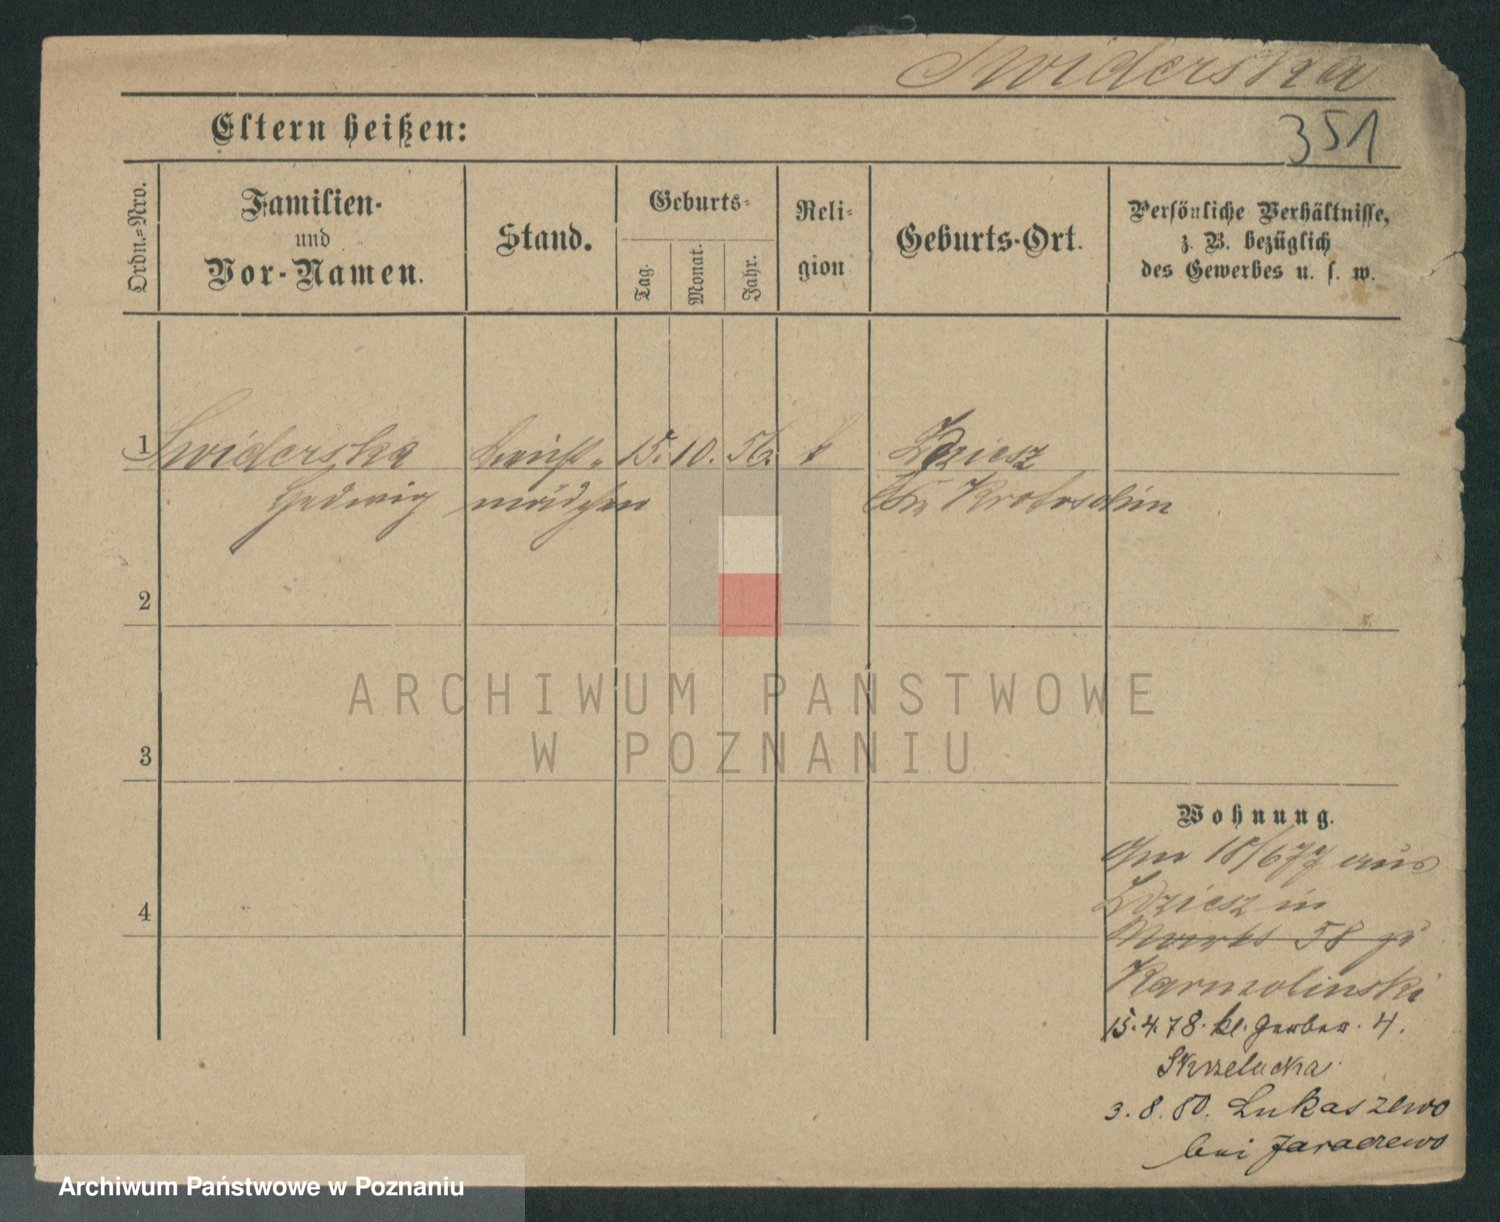 Swiderska
Eltern heißen:
351
Ordn.=Nro.
Familien-
und
Vor-Namen.
Stand.
Geburts-
Tag.
Monat.
Jahr.
Reli-
gion
Geburts-Ort.
Persönliche Verhältnisse,
z. B. bezüglich
des Gewerbes u. s. w.
1 Swiderska 15. 10. 56. k
Hedwig mädchen Krotoschin
2
ARCHIWUM PAŃSTWOWE
W POZNANIU
3
Wohnung.
4
Am 18/6 77 aus
in
58 zu
Karmolinski
15.4.78. kl. Gerber. 4.
3.8.80. Lukaszewo
bei Jaraczewo
Archiwum Państwowe w Poznaniu